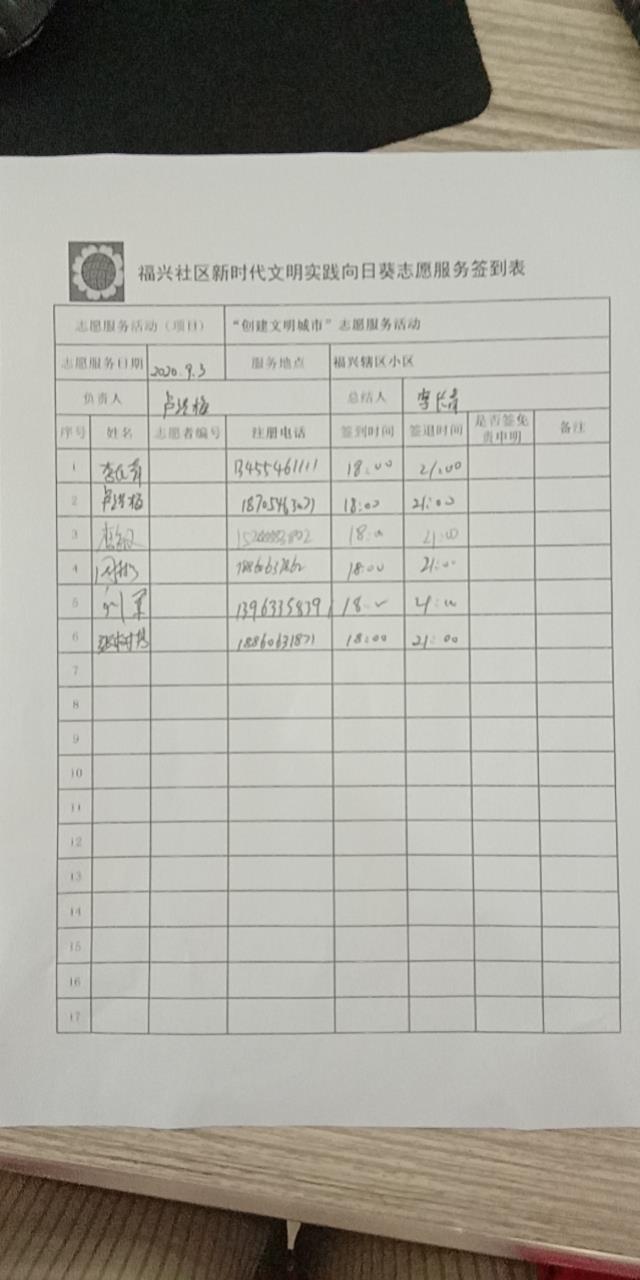 福兴社区新时代文明实践向日葵志愿服务签到表
志愿服务活动（项目） “创建文明城市”志愿服务活动
志愿服务日期 2020.9.3 服务地点 福兴辖区小区
负责人 总结人 李长青
序号 姓名 志愿者编号 注册电话 签到时间 签退时间 是否签免责申明 备注
1 13455461111 18:00 21:00
2 18705463071 18:00 21:00
3 18:00 21:00
4 18:00 21:00
5 18:00 21:00
6 18860631871 18:00 21:00
7
8
9
10
11
12
13
14
15
16
17